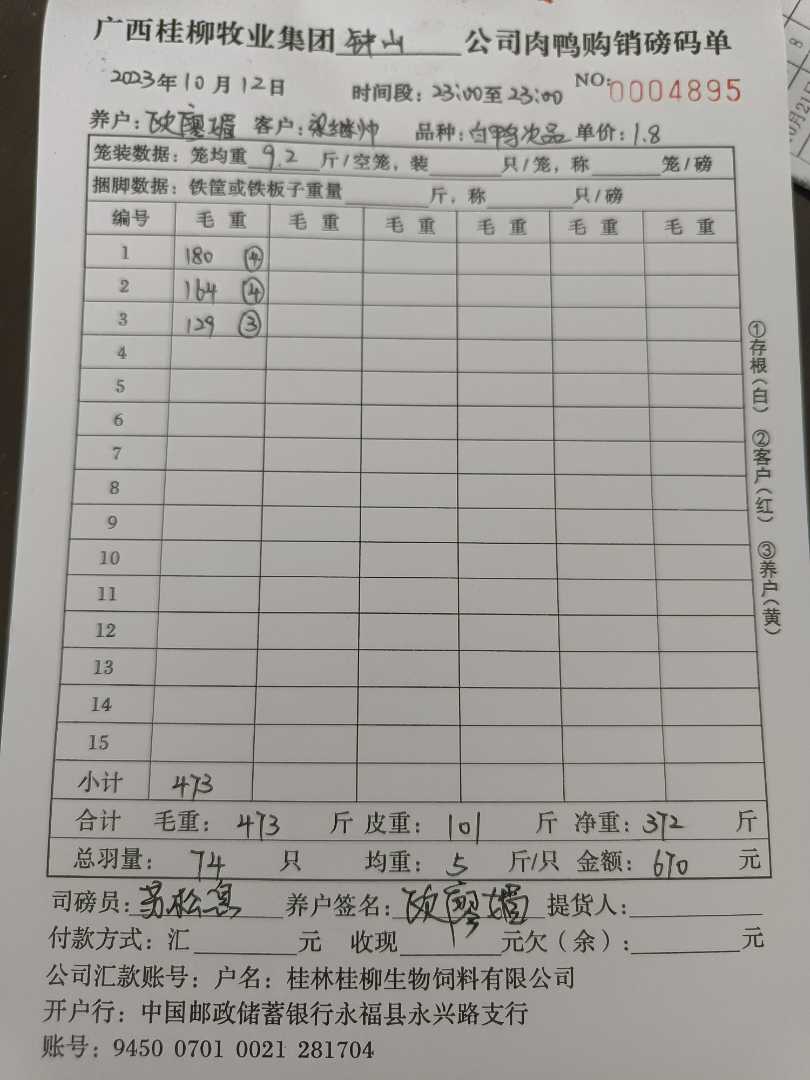 广西桂柳牧业集团 钟山 公司肉鸭购销磅码单
2023年10月12日 时间段：23:00至23:00 NO：0004895
养户：欧廖瑂 客户：梁继帅 品种：白鸭次品 单价：1.8
笼装数据：笼均重 9.2 斤/空笼，装 只/笼，称 笼/磅
捆脚数据：铁筐或铁板子重量 斤，称 只/磅
编号 毛重 毛重 毛重 毛重 毛重 毛重
1 180 ④
2 164 ④
3 129 ③
4
5
6
7
8
9
10
11
12
13
14
15
小计 473
合计 毛重：473 斤 皮重：101 斤 净重：372 斤
总羽量：74 只 均重：5 斤/只 金额：670 元
司磅员： 养户签名：欧廖瑂 提货人：
付款方式：汇 元 收现 元欠（余）： 元
公司汇款账号：户名：桂林桂柳生物饲料有限公司
开户行：中国邮政储蓄银行永福县永兴路支行
账号：9450 0701 0021 281704
①存根（白） ②客户（红） ③养户（黄）